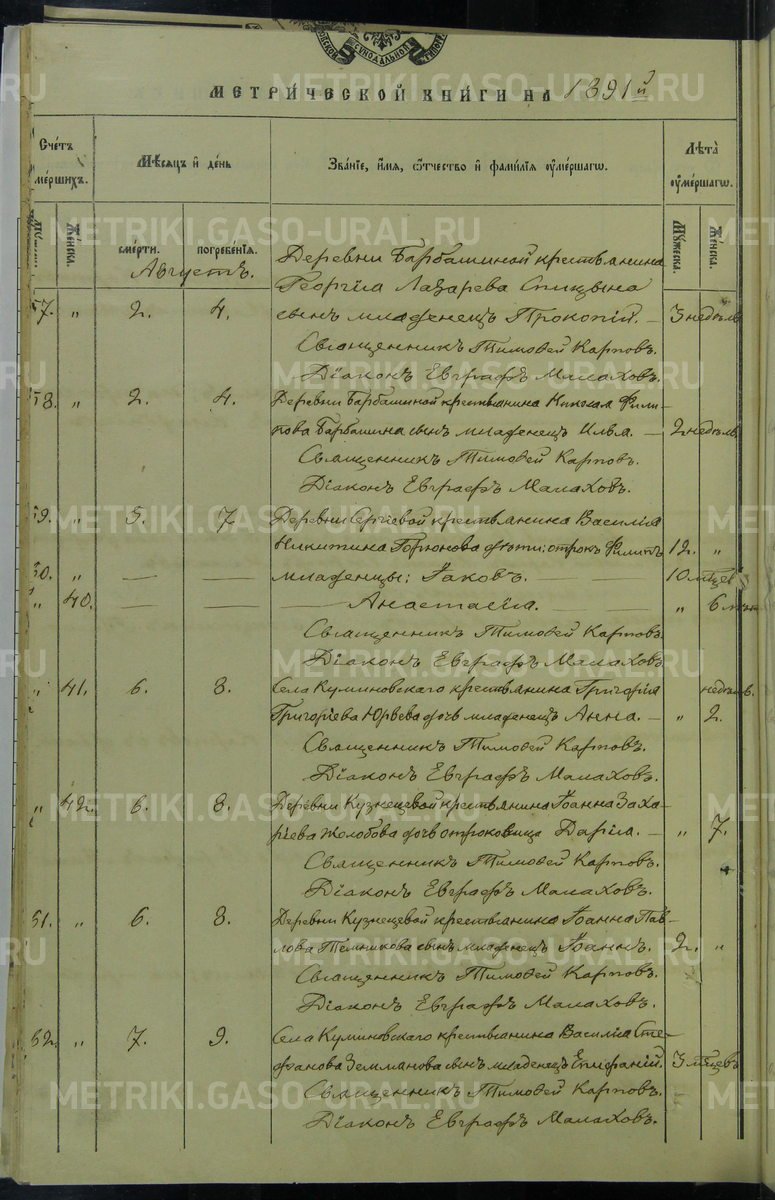 СѴНОДАЛЬНОЙ
МЕТРИ́ЧЕСКОЙ КНИ́ГИ НА 1891й
Сче́тъ ᲂуме́ршихъ.
Мѣ́сяцъ и де́нь
Зва́нїе, и́мя, ѻ҆́тчество и фами́лїя ᲂуме́ршагѡ.
Лѣта̀ ᲂуме́ршагѡ.
Же́нска.
сме́рти.
погребе́нїя.
Му́жеска.
Же́нска.
Августъ.
Деревни Барбашиной крестьянина
Георгія Лазарева Спицына
57. " 2. 4. сынъ младенецъ Прокопій. — 3 недѣль
Священникъ Тимофей Карповъ.
Діаконъ Евграфъ Малаховъ.
58. " 2. 4. Деревни Барбашиной крестьянина Николая Фили-
пова Барбашина сынъ младенецъ Илья. — 2 недѣль
Священникъ Тимофей Карповъ.
Діаконъ Евграфъ Малаховъ.
59. " 5. 7. Деревни Сергіевой крестьянина Василія
Никитина Горюнова дѣти: отрокъ Филипъ 12. "
" — — младенцы: Іаковъ. — — 10 мѣцев
" 40. — — — Анастасія. — — " 6 лѣт
Священникъ Тимофей Карповъ.
Діаконъ Евграфъ Малаховъ
" 41. 6. 8. Села Куминовскаго крестьянина Григорія недѣль.
Григоріева Юрьева дочь младенецъ Анна. — " 2.
Священникъ Тимофей Карповъ.
Діаконъ Евграфъ Малаховъ.
" 42. 6. 8. Деревни Кузнецевой крестьянина Іоанна Заха-
ріева Желобова дочь отроковица Дарія. — " 7.
Священникъ Тимофей Карповъ.
Діаконъ Евграфъ Малаховъ.
61. " 6. 8. Деревни Кузнецевой крестьянина Іоанна Пав-
лова Темникова сынъ младенецъ Іоаннъ. 2. "
Священникъ Тимофей Карповъ.
Діаконъ Евграфъ Малаховъ.
62. " 7. 9. Села Куминовскаго крестьянина Василія Сте-
фанова Земманова сынъ младенецъ Епифаній. 3 мѣцевъ
Священникъ Тимофей Карповъ.
Діаконъ Евграфъ Малаховъ.
METRIKI.GASO-URAL.RU